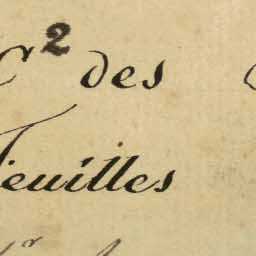 C² des
Feuilles